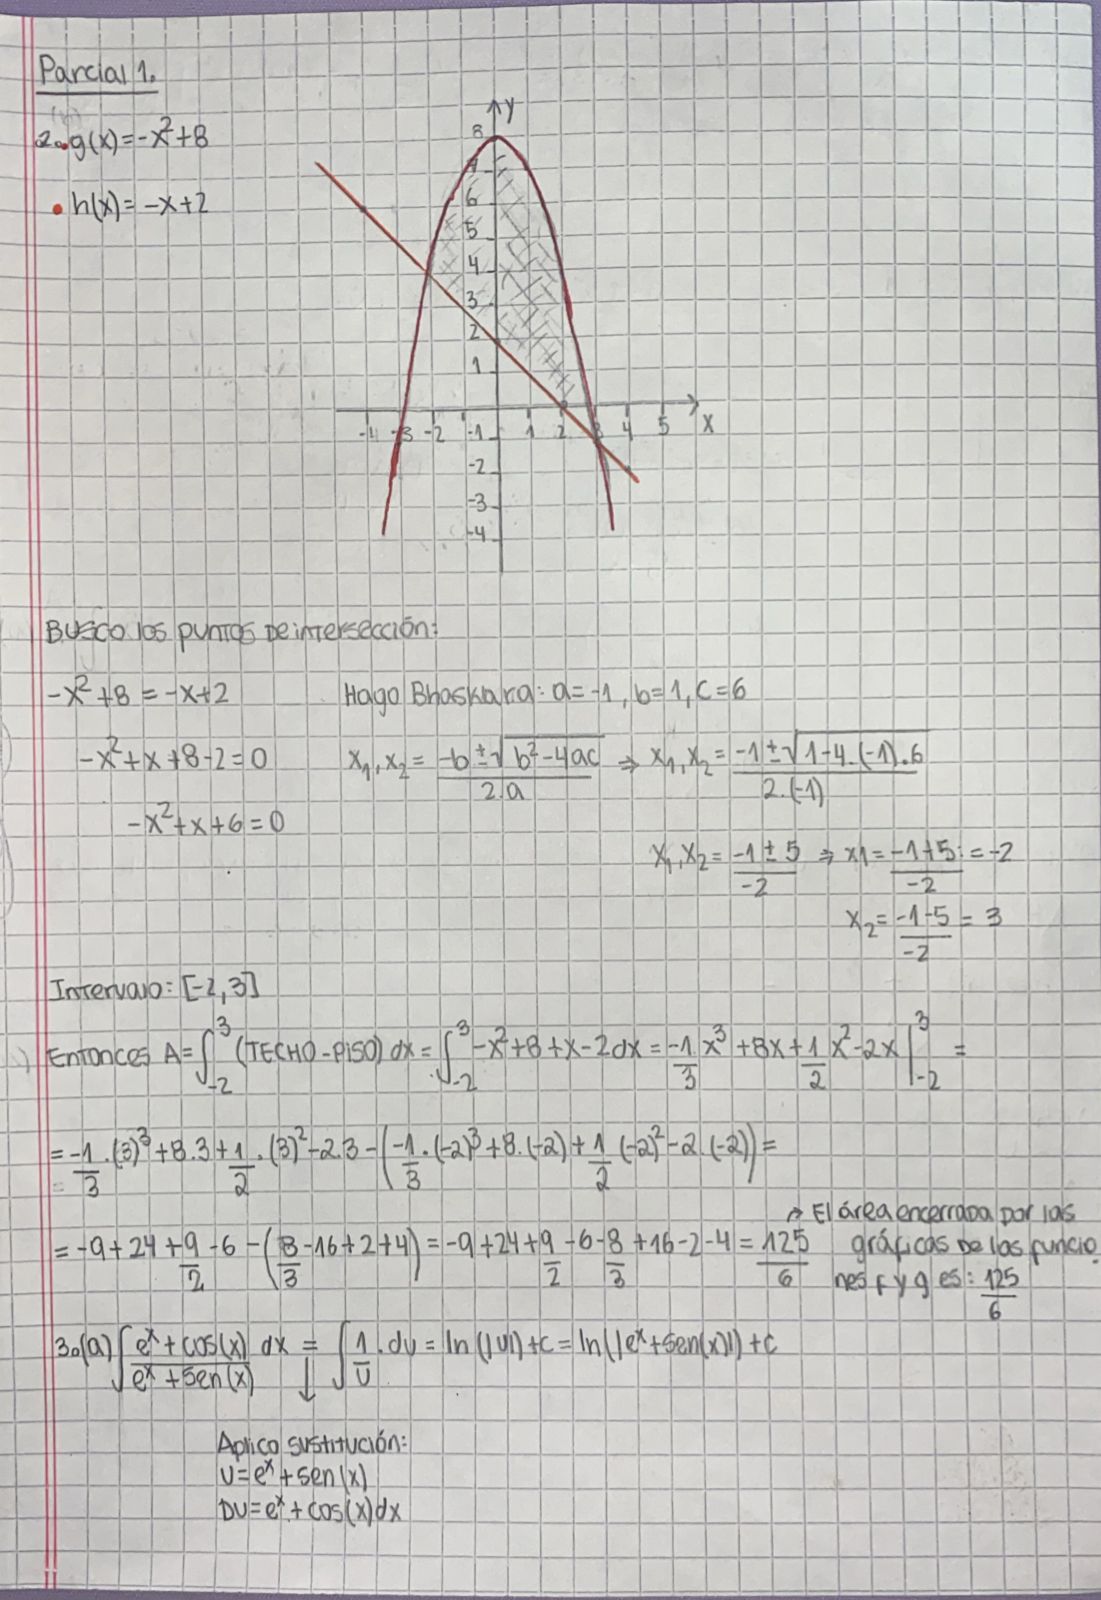 Parcial 1.
2. g(x)=-x²+8
h(x)=-x+2
y
8
7
6
5
4
3
2
1
-4 -3 -2 -1 1 2 3 4 5 x
-1
-2
-3
-4
Busco los puntos de intersección:
-x²+8=-x+2 Hago Bhaskara: a=-1, b=1, c=6
-x²+x+8-2=0 x₁,x₂= (-b±√(b²-4ac))/(2a) ⇒ x₁,x₂= (-1±√(1-4.(-1).6))/(2.(-1))
-x²+x+6=0
x₁,x₂= (-1±5)/(-2) ⇒ x1= (-1+5)/(-2) = -2
x₂= (-1-5)/(-2) = 3
Intervalo: [-2,3]
Entonces A=∫₋₂³ (TECHO-PISO) dx = ∫₋₂³ -x²+8+x-2dx = -1/3 x³+8x+1/2 x²-2x |₋₂³ =
= -1/3.(3)³+8.3+1/2.(3)²-2.3-(-1/3.(-2)³+8.(-2)+1/2(-2)²-2.(-2))=
= -9+24+9/2-6-(8/3-16+2+4) = -9+24+9/2-6-8/3+16-2-4 = 125/6
→ El área encerrada por las
gráficas de las funcio
nes f y g es: 125/6
3.(a) ∫ (eˣ+cos(x))/(eˣ+sen(x)) dx = ∫ 1/u . du = ln(|u|)+c = ln(|eˣ+sen(x)|)+c
↓
Aplico sustitución:
u=eˣ+sen(x)
Du=eˣ+cos(x)dx